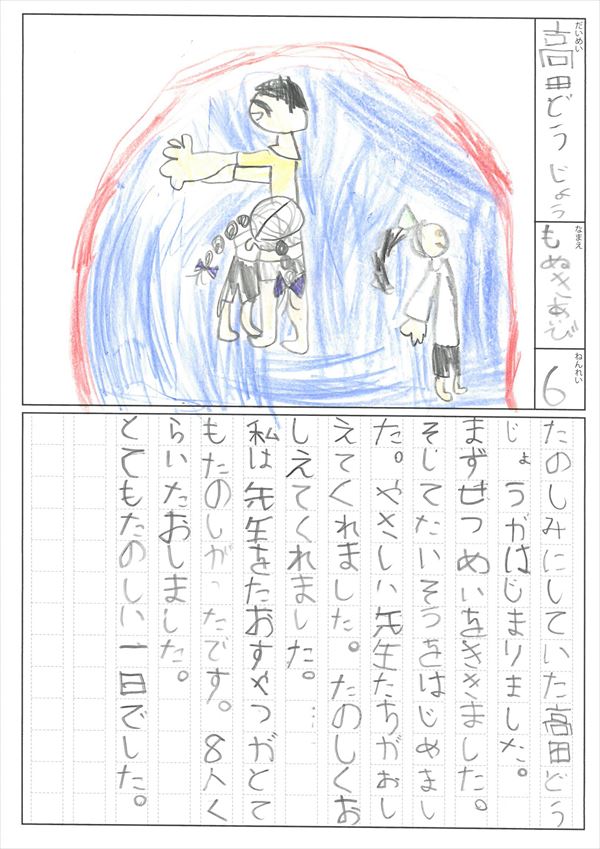 だいめい
高田どうじょう
なまえ
もぬきあび
ねんれい
6
たのしみにしていた高田どう
じょうがはじまりました。
まずせつめいをききました。
そしてたいそうをはじめまし
た。やさしい先生たちがおし
えてくれました。たのしくお
しえてくれました。…
私は先生をたおすやつがとて
もたのしがったです。8人く
らいたおしました。
とてもたのしい一日でした。